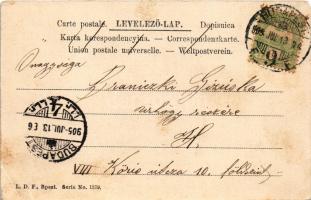 Carte postale. LEVELEZŐ-LAP. Dopisnica
Karta korespondencyjna. — Correspondenzkarte.
Union postale universelle. — Weltpostverein.
Braniczki Gizuska
urhögy részére
H.
VIII Kőris utcza 10. földszint
BUDAPEST
905 JUL. 13 E6
L. D. F., Bpest. Serie No. 1259.